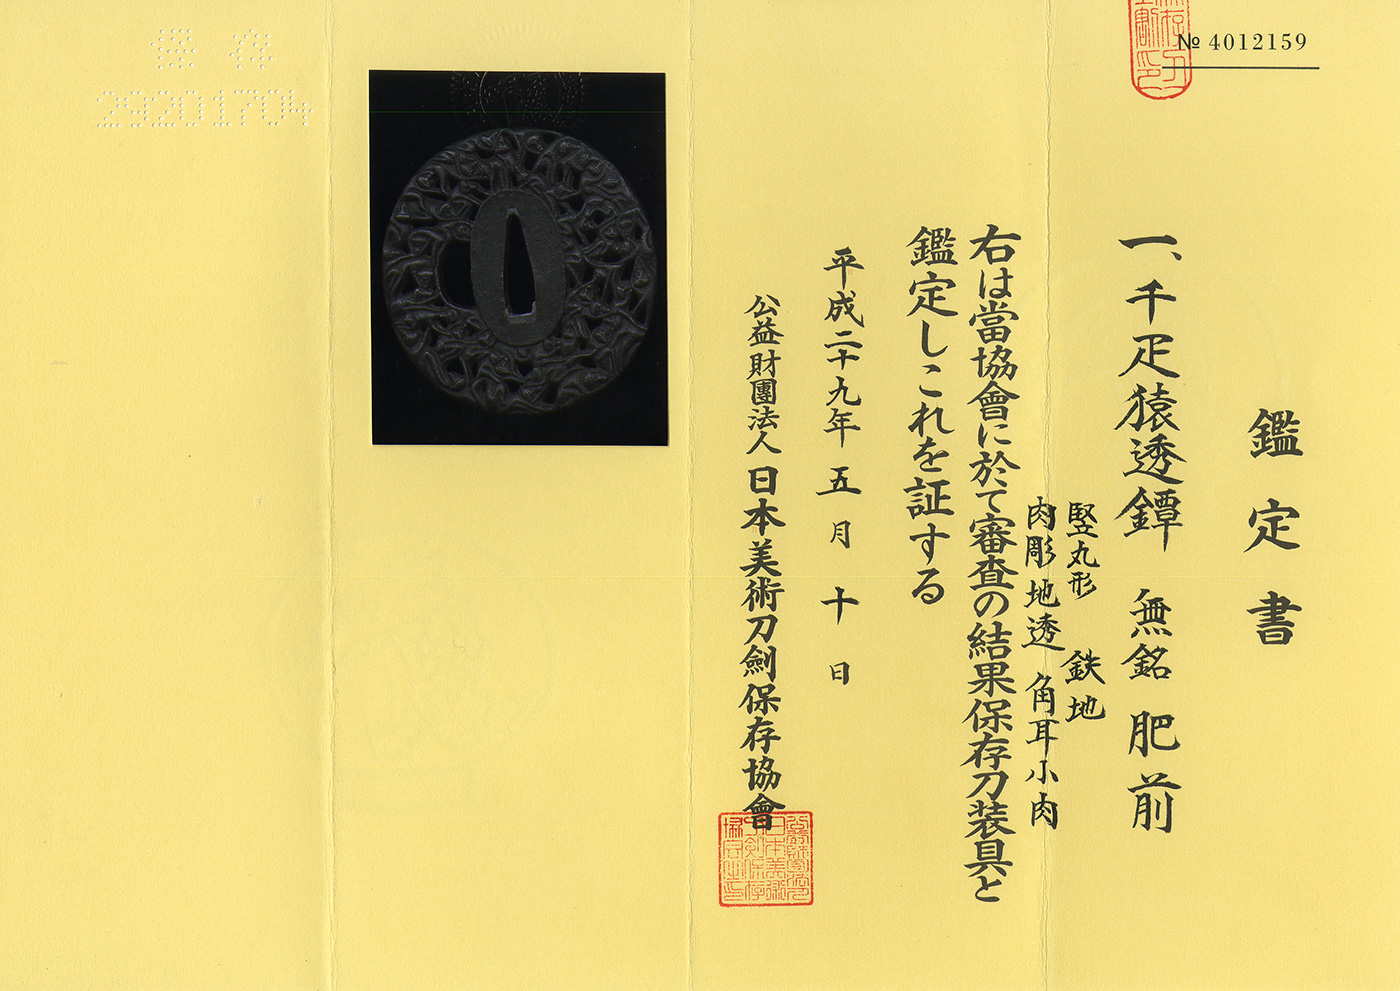 № 4012159
鑑定書
一、千疋猿透鐔 無銘 肥前
竪丸形 鉄地
肉彫地透 角耳小肉
右は當協會に於て審査の結果保存刀装具と
鑑定しこれを証する
平成二十九年五月十日
公益財團法人 日本美術刀劍保存協會
保存
29201704